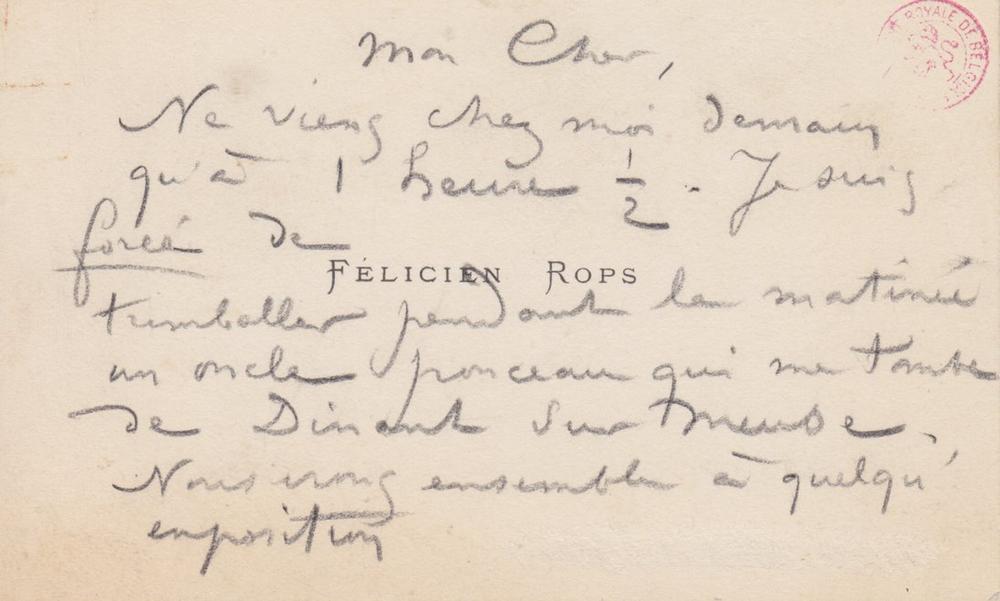 Mon Cher,
ROYALE DE BELGI
Ne viens chez moi demain
qu'à 1 heure 1/2. Je suis
forcé de
FÉLICIEN ROPS
trimballer pendant la matinée
un oncle ponceau qui me tombe
de Dinant sur Meuse.
Nous irons ensemble à quelqu'
exposition